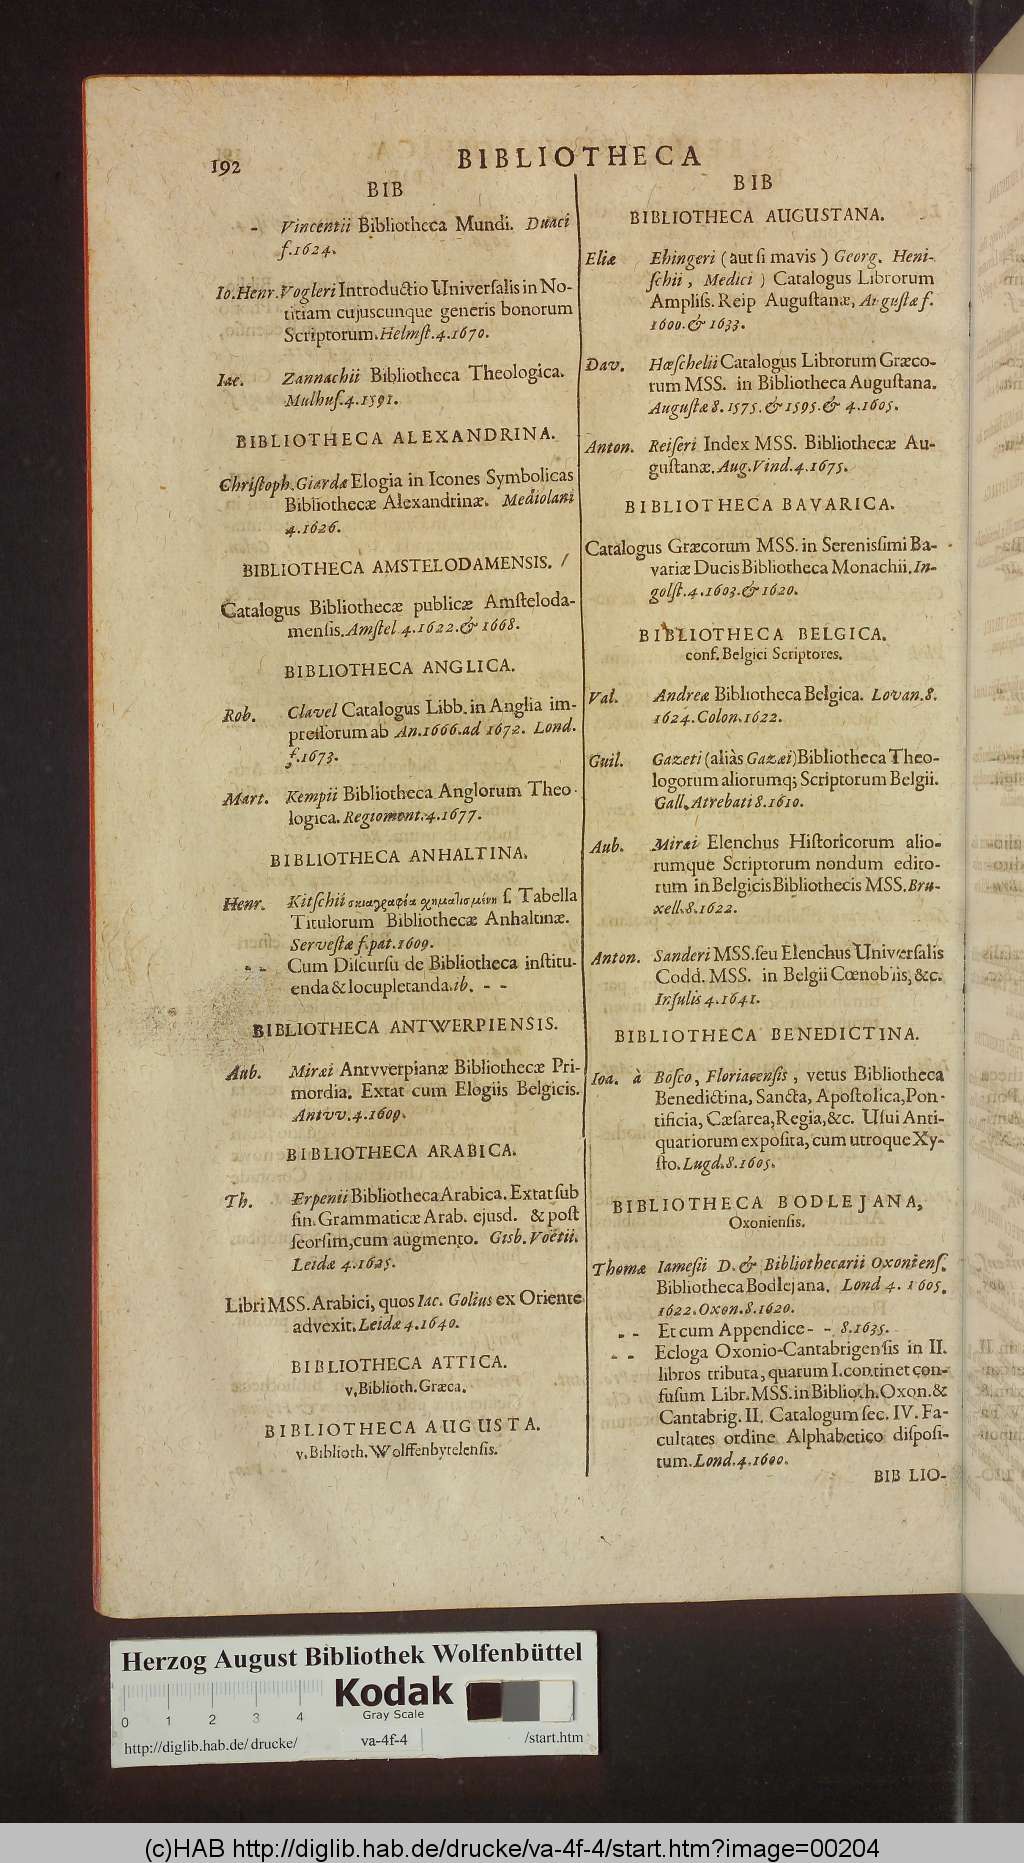 192
BIBLIOTHECA
BIB
- Vincentii Bibliotheca Mundi. Duaci
f. 1624.
Io. Henr. Vogleri Introductio Univerſalis in No-
titiam cujuscunque generis bonorum
Scriptorum. Helmſt. 4. 1670.
Iac. Zannachii Bibliotheca Theologica.
Mulhuſ. 4. 1591.
BIBLIOTHECA ALEXANDRINA.
Chriſtoph. Giardæ Elogia in Icones Symbolicas
Bibliothecæ Alexandrinæ. Mediolani
4. 1626.
BIBLIOTHECA AMSTELODAMENSIS. /
Catalogus Bibliothecæ publicæ Amſteloda-
menſis. Amſtel 4. 1622. & 1668.
BIBLIOTHECA ANGLICA.
Rob. Clavel Catalogus Libb. in Anglia im-
preſſorum ab An. 1666. ad 1672. Lond.
f. 1673.
Mart. Kempii Bibliotheca Anglorum Theo-
logica. Regiomont. 4. 1677.
BIBLIOTHECA ANHALTINA.
Henr. Kitſchii σκιαγραφία χηματισμένη ſ. Tabella
Titulorum Bibliothecæ Anhaltinæ.
Serveſtæ f. pat. 1609.
- - Cum Diſcurſu de Bibliotheca inſtitu-
enda & locupletanda. ib. - -
BIBLIOTHECA ANTWERPIENSIS.
Aub. Miræi Antvverpianæ Bibliothecæ Pri-
mordia. Extat cum Elogiis Belgicis.
Antvv. 4. 1609.
BIBLIOTHECA ARABICA.
Th. Erpenii Bibliotheca Arabica. Extat ſub
fin. Grammaticæ Arab. ejusd. & poſt
ſeorſim, cum augmento. Gisb. Voëtii.
Leidæ 4. 1625.
Libri MSS. Arabici, quos Iac. Golius ex Oriente
advexit. Leidæ 4. 1640.
BIBLIOTHECA ATTICA.
v. Biblioth. Græca.
BIBLIOTHECA AUGUSTA.
v. Biblioth. Wolffenbytelenſis.
BIB
BIBLIOTHECA AUGUSTANA.
Eliæ Ehingeri (aut ſi mavis) Georg. Heni-
ſchii, Medici) Catalogus Librorum
Ampliſſ. Reip Auguſtanæ, Auguſtæ f.
1600. & 1633.
Dav. Hœſchelii Catalogus Librorum Græco-
rum MSS. in Bibliotheca Auguſtana.
Auguſtæ 8. 1575. & 1595. & 4. 1605.
Anton. Reiſeri Index MSS. Bibliothecæ Au-
guſtanæ. Aug. Vind. 4. 1675.
BIBLIOTHECA BAVARICA.
Catalogus Græcorum MSS. in Serenisſimi Ba-
variæ Ducis Bibliotheca Monachii. In-
golſt. 4. 1603. & 1620.
BIBLIOTHECA BELGICA.
conf. Belgici Scriptores.
Val. Andreæ Bibliotheca Belgica. Lovan. 8.
1624. Colon. 1622.
Guil. Gazeti (aliàs Gazæi) Bibliotheca Theo-
logorum aliorumq; Scriptorum Belgii.
Gall. Atrebati 8. 1610.
Aub. Miræi Elenchus Hiſtoricorum alio-
rumque Scriptorum nondum edito-
rum in Belgicis Bibliothecis MSS. Bru-
xell. 8. 1622.
Anton. Sanderi MSS. ſeu Elenchus Univerſalis
Codd. MSS. in Belgii Cœnobiis, &c.
Inſulis 4. 1641.
BIBLIOTHECA BENEDICTINA.
Ioa. à Boſco, Floriacenſis, vetus Bibliotheca
Benedictina, Sancta, Apoſtolica, Pon-
tificia, Cæſarea, Regia, &c. Uſui Anti-
quatiorum expoſita, cum utroque Xy-
ſto. Lugd. 8. 1605.
BIBLIOTHECA BODLEJANA,
Oxonienſis.
Thomæ Iameſii D. & Bibliothecarii Oxonienſ.
Bibliotheca Bodlejana. Lond 4. 1605.
1622. Oxon. 8. 1620.
- - Et cum Appendice - - 8. 1635.
- - Ecloga Oxonio-Cantabrigenſis in II.
libros tributa, quarum I. continet con-
fuſum Libr. MSS. in Biblioth. Oxon. &
Cantabrig. II. Catalogum ſec. IV. Fa-
cultates ordine Alphabetico diſpoſi-
tum. Lond. 4. 1600.
BIB LIO-
Herzog August Bibliothek Wolfenbüttel
Kodak
Gray Scale
0 1 2 3 4
http://diglib.hab.de/drucke/ va-4f-4 /start.htm
(c)HAB http://diglib.hab.de/drucke/va-4f-4/start.htm?image=00204